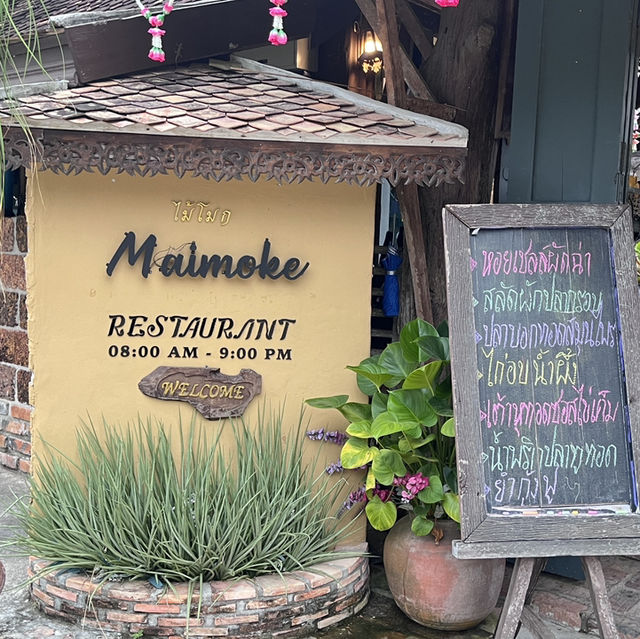 ไม้โมก
Maimoke
RESTAURANT
08:00 AM - 9:00 PM
WELCOME
หอยเชลล์ผัดฉ่า
สลัดผักปลากรอบ
ปลาบอกทอดสมุนไพร
ไก่อบน้ำผึ้ง
เต้าหู้ทอดซอสไข่เค็ม
น้ำพริกปลาทูทอด